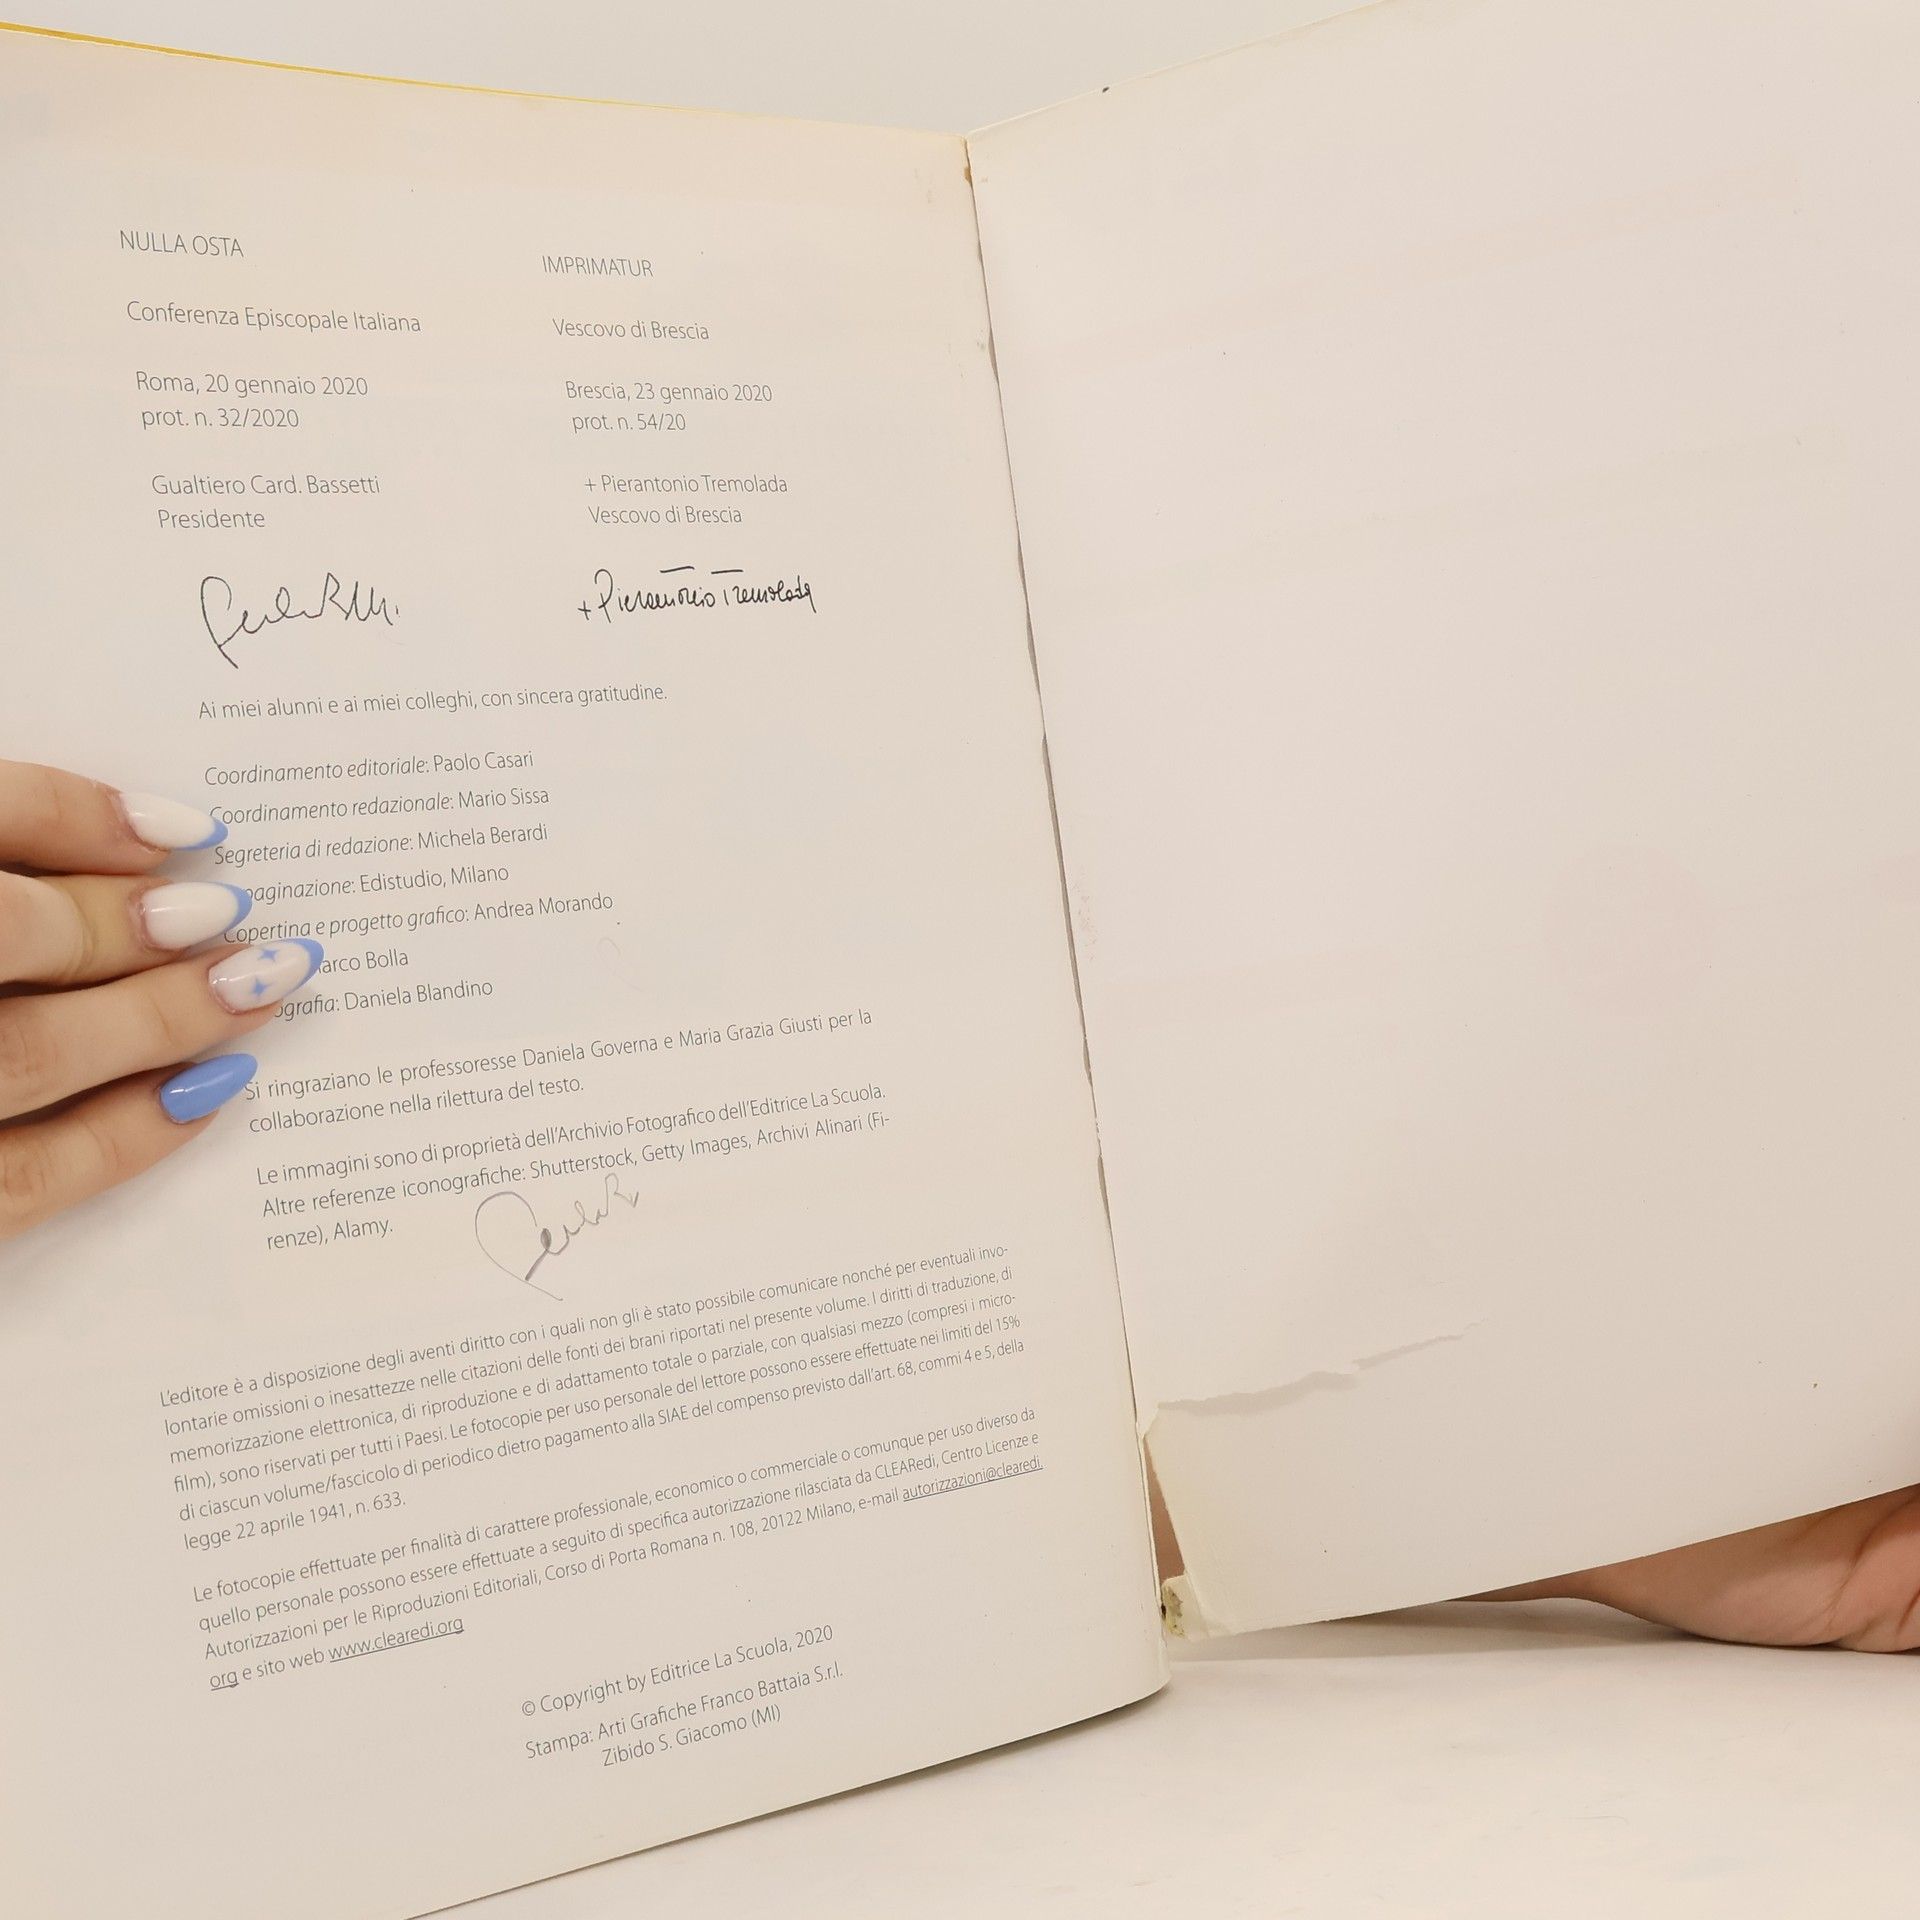 NULLA OSTA
Conferenza Episcopale Italiana
Roma, 20 gennaio 2020
prot. n. 32/2020
Gualtiero Card. Bassetti
Presidente
IMPRIMATUR
Vescovo di Brescia
Brescia, 23 gennaio 2020
prot. n. 54/20
+ Pierantonio Tremolada
Vescovo di Brescia
+ Pierantonio Tremolada
Ai miei alunni e ai miei colleghi, con sincera gratitudine.
Coordinamento editoriale: Paolo Casari
Coordinamento redazionale: Mario Sissa
Segreteria di redazione: Michela Berardi
paginazione: Edistudio, Milano
Copertina e progetto grafico: Andrea Morando
arco Bolla
ografia: Daniela Blandino
Si ringraziano le professoresse Daniela Governa e Maria Grazia Giusti per la
collaborazione nella rilettura del testo.
Le immagini sono di proprietà dell'Archivio Fotografico dell'Editrice La Scuola.
Altre referenze iconografiche: Shutterstock, Getty Images, Archivi Alinari (Fi-
renze), Alamy.
L'editore è a disposizione degli aventi diritto con i quali non gli è stato possibile comunicare nonché per eventuali invo-
lontarie omissioni o inesattezze nelle citazioni delle fonti dei brani riportati nel presente volume. I diritti di traduzione, di
memorizzazione elettronica, di riproduzione e di adattamento totale o parziale, con qualsiasi mezzo (compresi i micro-
film), sono riservati per tutti i Paesi. Le fotocopie per uso personale del lettore possono essere effettuate nei limiti del 15%
di ciascun volume/fascicolo di periodico dietro pagamento alla SIAE del compenso previsto dall'art. 68, commi 4 e 5, della
legge 22 aprile 1941, n. 633.
Le fotocopie effettuate per finalità di carattere professionale, economico o commerciale o comunque per uso diverso da
quello personale possono essere effettuate a seguito di specifica autorizzazione rilasciata da CLEARedi, Centro Licenze e
Autorizzazioni per le Riproduzioni Editoriali, Corso di Porta Romana n. 108, 20122 Milano, e-mail autorizzazioni@clearedi.
org e sito web www.clearedi.org
© Copyright by Editrice La Scuola, 2020
Stampa: Arti Grafiche Franco Battaia S.r.l.
Zibido S. Giacomo (MI)